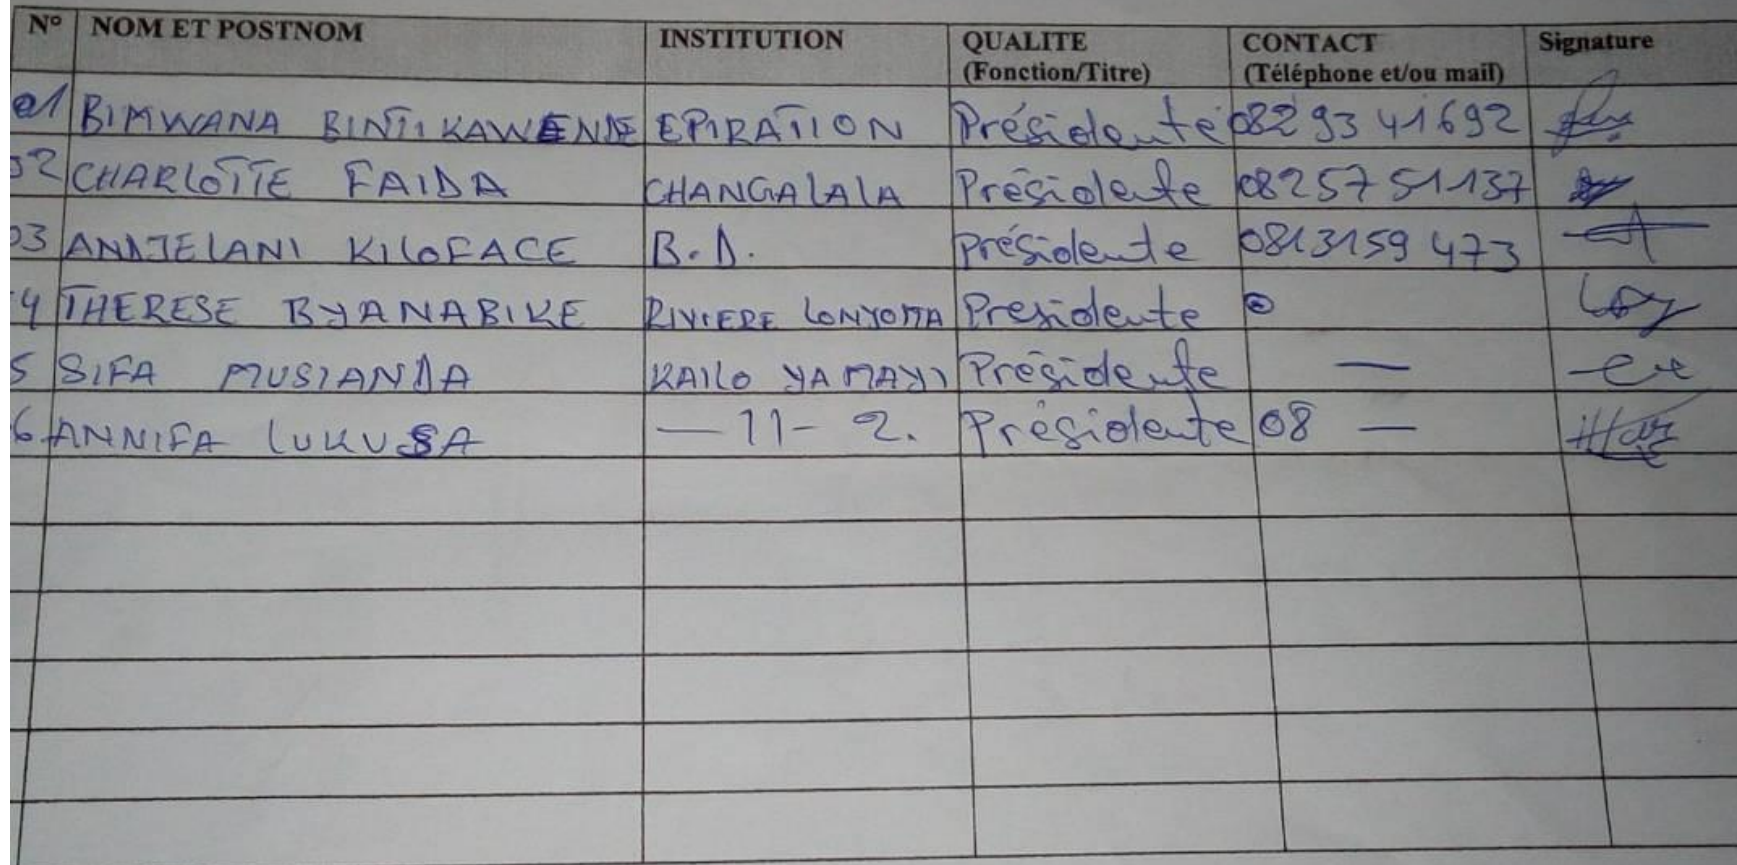 N° NOM ET POSTNOM INSTITUTION QUALITE (Fonction/Titre) CONTACT (Téléphone et/ou mail) Signature
01 BIMWANA BINTI KAWENDE EPIRATION Présidente 082 93 41692
02 CHARLOTTE FAIDA CHANGALALA Présidente 08257 51137
03 ANDJELANI KILOFACE B.D. Présidente 0813159 473
4 THERESE BYANABIKE RIVIERE LONYOMA Presidente 0
5 SIFA MUSIANDA KAILO YA MAYI Présidente —
6 ANNIFA LUKUSA — 11 - 2. Présidente 08 —